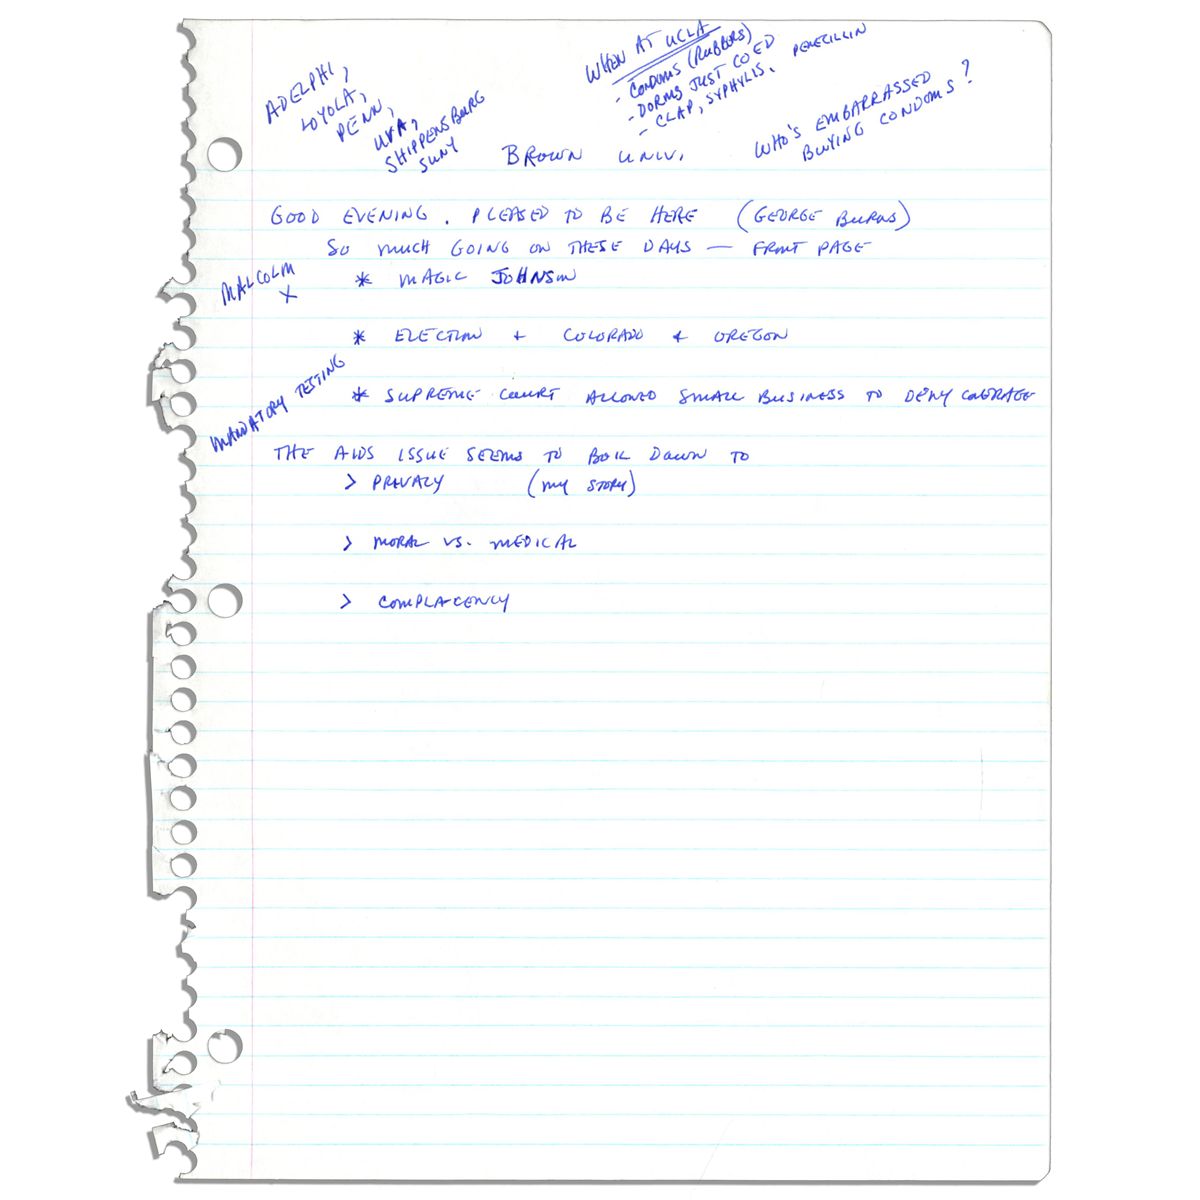 ADELPHI,
LOYOLA,
PENN,
UVA,
SHIPPENSBURG
SUNY
WHEN AT UCLA
- CONDOMS (RUBBERS)
- DORMS JUST COED
- CLAP, SYPHYLIS, PENECILLIN
WHO'S EMBARRASSED
BUYING CONDOMS?
BROWN UNIV.
GOOD EVENING. PLEASED TO BE HERE (GEORGE BURNS)
SO MUCH GOING ON THESE DAYS — FRONT PAGE
MALCOLM
X
* MAGIC JOHNSON
* ELECTION + COLORADO & OREGON
MANDATORY TESTING
* SUPREME COURT ALLOWED SMALL BUSINESS TO DENY COVERAGE
THE AIDS ISSUE SEEMS TO BOIL DOWN TO
> PRIVACY (MY STORY)
> MORAL VS. MEDICAL
> COMPLACENCY